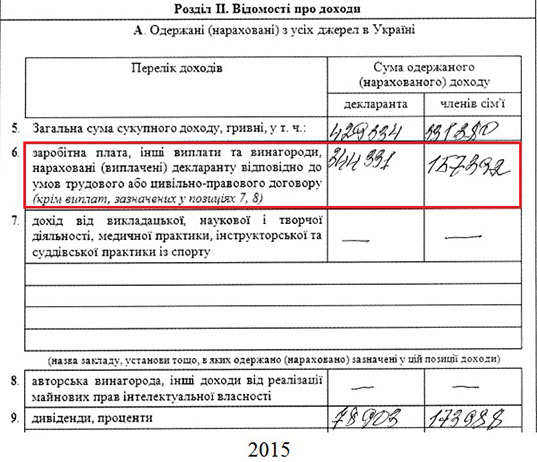 Розділ II. Відомості про доходи
А. Одержані (нараховані) з усіх джерел в Україні
Перелік доходів
Сума одержаного
(нарахованого) доходу
декларанта
членів сім'ї
5. Загальна сума сукупного доходу, гривні, у т. ч.: 429334 331380
6. заробітна плата, інші виплати та винагороди, 344331 157392
нараховані (виплачені) декларанту відповідно до
умов трудового або цивільно-правового договору
(крім виплат, зазначених у позиціях 7, 8)
7. дохід від викладацької, наукової і творчої
діяльності, медичної практики, інструкторської та — —
суддівської практики із спорту
(назва закладу, установи тощо, в яких одержано (нараховано) зазначені у цій позиції доходи)
8. авторська винагорода, інші доходи від реалізації — —
майнових прав інтелектуальної власності
9. дивіденди, проценти 78903 173988
2015